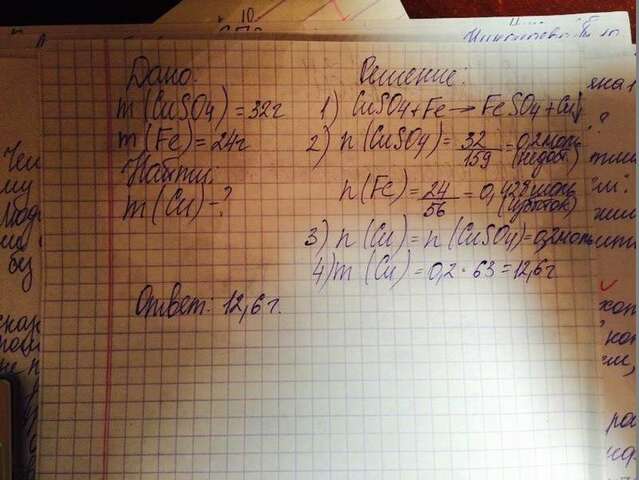 10
Дано:
m(CuSO4)=32г
m(Fe)=24г
Найти:
m(Cu)-?
Решение:
1) CuSO4+Fe→FeSO4+Cu↓
2) n(CuSO4)=32/159=0,2моль (недост)
n(Fe)=24/56=0,428моль (избыток)
3) n(Cu)=n(CuSO4)=0,2моль
4) m(Cu)=0,2·63=12,6г
Ответ: 12,6г.